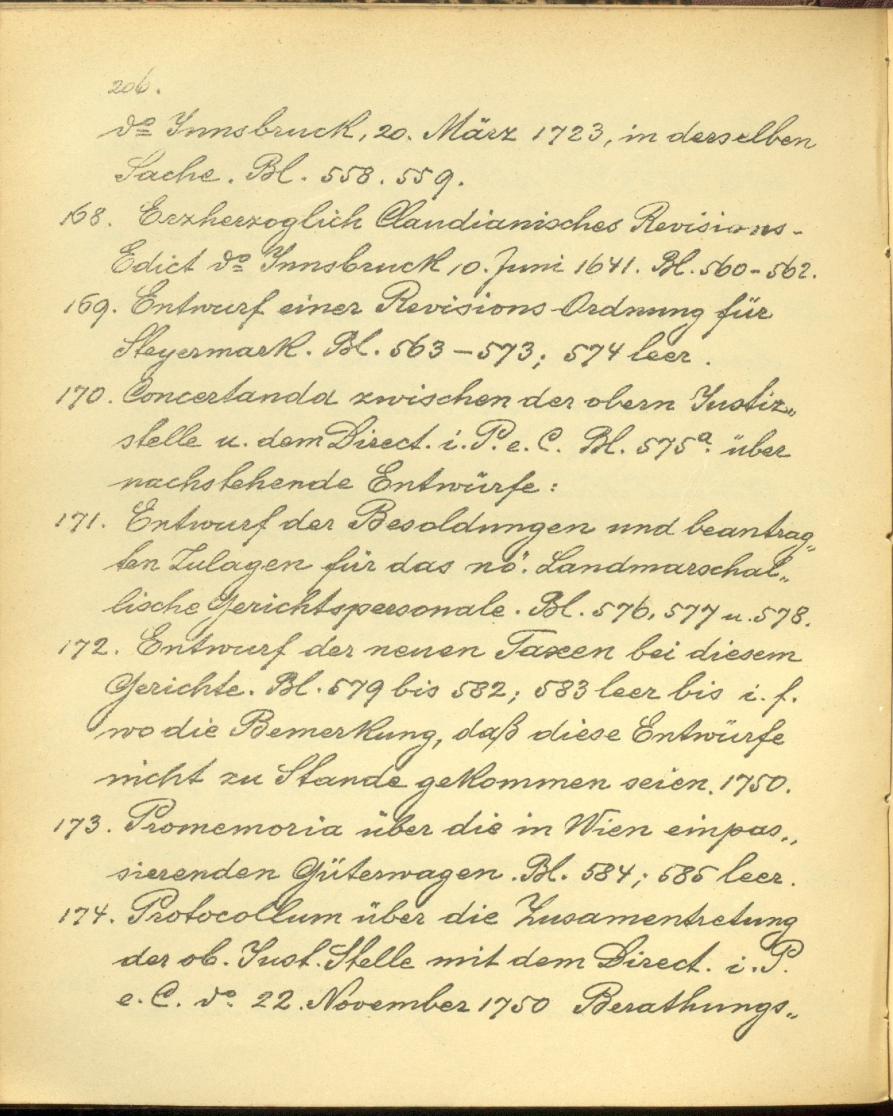 206.
dº Innsbruck, 20. März 1723, in derselben
Sache. Bl. 558. 559.
168. Erzherzoglich Claudianisches Revisions-
Edict dº Innsbruck 10. Juni 1641. Bl. 560-562.
169. Entwurf einer Revisions-Ordnung für
Steyermark. Bl. 563 – 573; 574 leer.
170. Concertanda zwischen der obern Justiz„
stelle u. dem Direct. i. P. e. C. Bl. 575ª. über
nachstehende Entwürfe:
171. Entwurf der Besoldungen und beantrag„
ten Zulagen für das nö. Landmarschal„
lische Gerichtspersonale. Bl. 576, 577 u. 578.
172. Entwurf der neuen Taxen bei diesem
Gerichte. Bl. 579 bis 582; 583 leer bis i. f.
wo die Bemerkung, daß diese Entwürfe
nicht zu Stande gekommen seien. 1750.
173. Promemoria über die in Wien einpas„
sierenden Güterwagen. Bl. 584; 585 leer.
174. Protocollum über die Zusamentretung
der ob. Just. Stelle mit dem Direct. i. P.
e. C. dº. 22. November 1750 Berathungs„